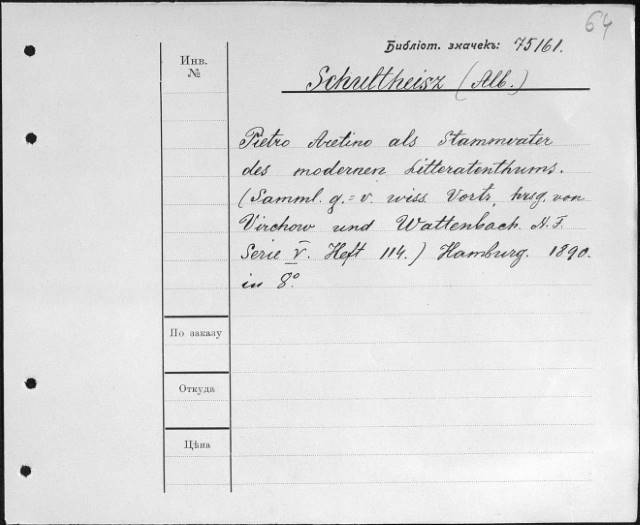 64
Библіот. значекъ: 75161.
Инв.
№
Schultheisz (Alb.)
Pietro Aretino als Stammvater
des modernen Litteratenthums.
(Samml. g.=v. wiss. Vortr. hrsg. von
Virchow und Wattenbach. N. F.
Serie V. Heft 114.) Hamburg. 1890.
in 8°.
По заказу
Откуда
Цѣна